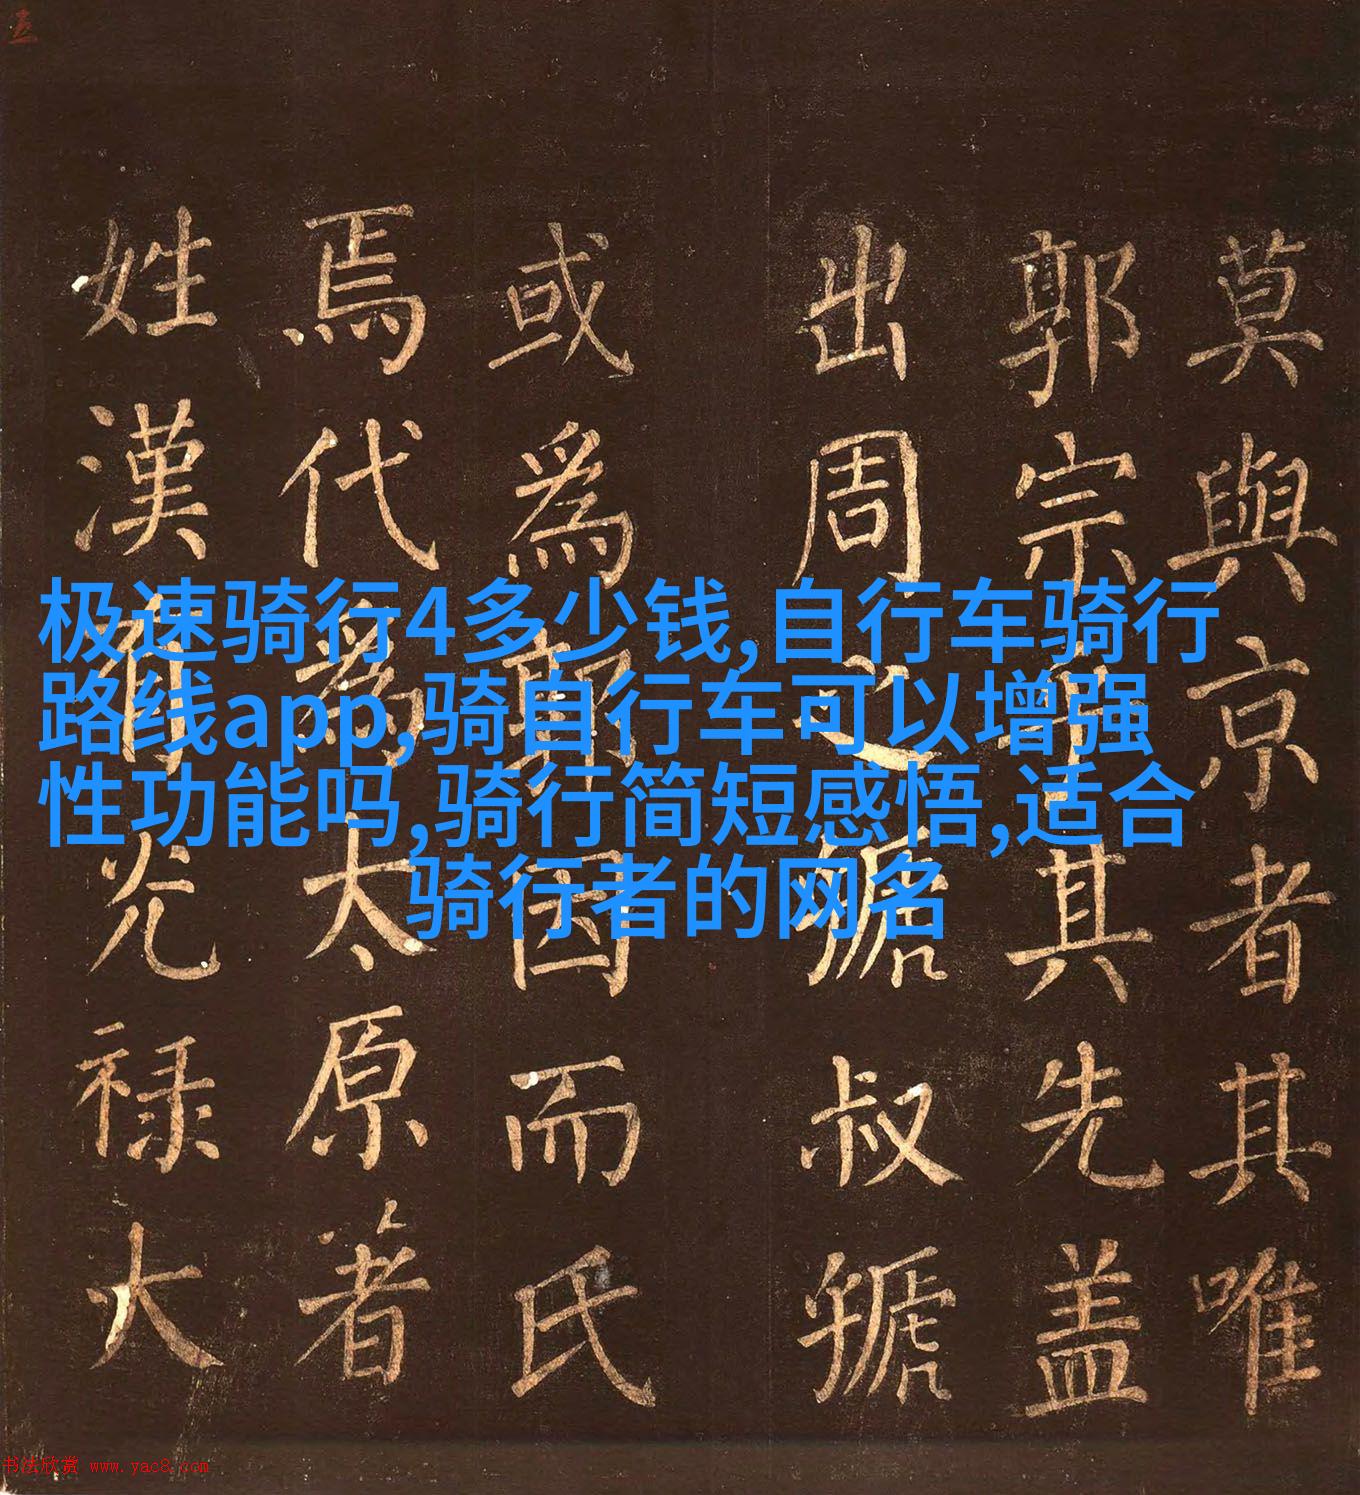 莫與京者其唯
郭宗乎其先盖
出周之虢叔虢
或為郭因而氏
焉代為太原著
姓漢有光禄大
极速骑行4多少钱,自行车骑行
路线app,骑自行车可以增强
性功能吗,骑行简短感悟,适合
骑行者的网名
书法欣赏 www.yac8.com